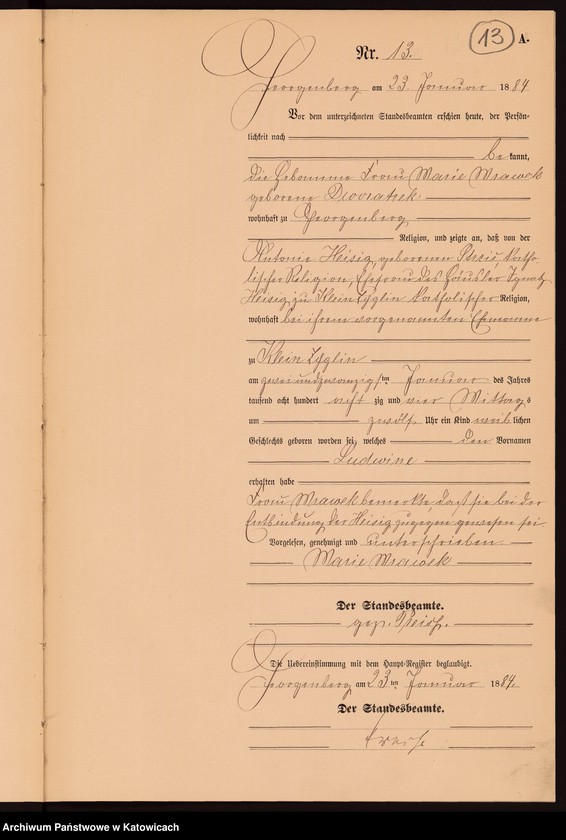 13
A.
Nr. 13.
Georgenberg am 23. Januar 1884.
Vor dem unterzeichneten Standesbeamten erschien heute, der Persön-
lichkeit nach
be kannt,
die Hebamme Frau Marie Wrawek
geborene
wohnhaft zu Georgenberg
Religion, und zeigte an, daß von der
Antonie Heisig, geborenen katho-
lischer Religion, Ehefrau des Häusler Ignatz
Heisig zu Klein Zyglin katholischer Religion,
wohnhaft bei ihrem vorgenannten Ehemanne
zu Klein Zyglin
am zwei und zwanzig ten Januar des Jahres
tausend acht hundert acht zig und vier Mittags
um zwölf Uhr ein Kind weib lichen
Geschlechts geboren worden sei, welches den Vornamen
Ludwine
erhalten habe
Frau Wrawek bemerkte, daß sie bei der
Entbindung der Heisig zugegen gewesen sei
Vorgelesen, genehmigt und unterschrieben
Marie Wrawek
Der Standesbeamte.
gez.
Die Uebereinstimmung mit dem Haupt-Register beglaubigt.
Georgenberg am 23 ten Januar 1884.
Der Standesbeamte.
Archiwum Państwowe w Katowicach